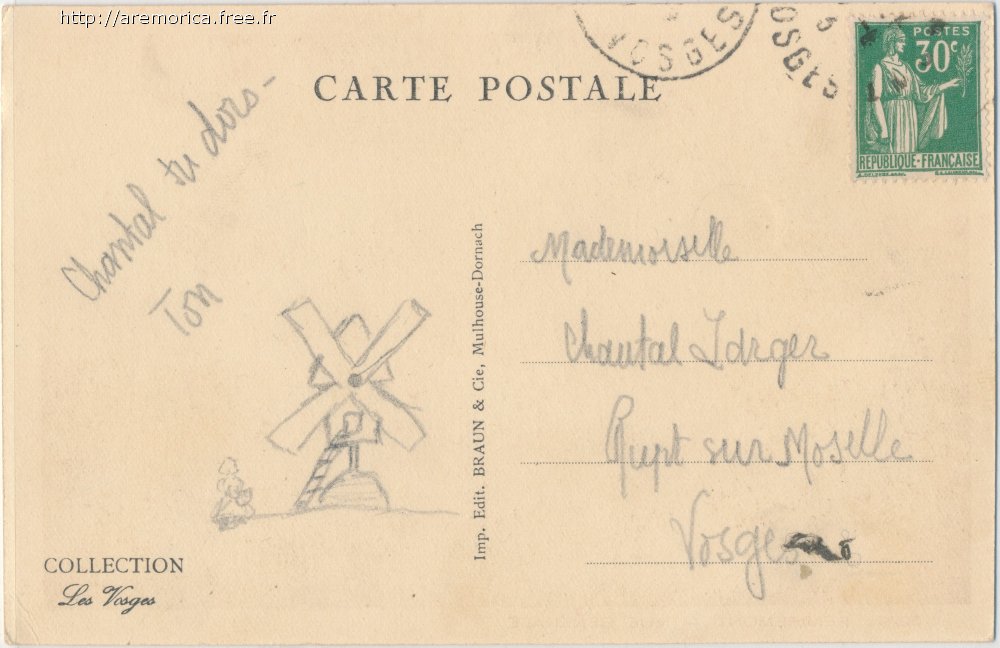 http://aremorica.free.fr
VOSGES
OSGES
POSTES
30c
RÉPUBLIQUE-FRANÇAISE
CARTE POSTALE
Chantal tu dors -
Ton
Imp. Edit. BRAUN & Cie, Mulhouse-Dornach
Mademoiselle
Chantal
Rupt sur Moselle
Vosges
COLLECTION
Les Vosges